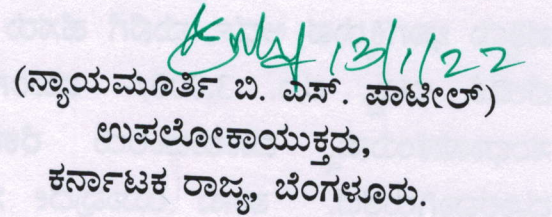 13/1/22
(ನ್ಯಾಯಮೂರ್ತಿ ಬಿ. ಎಸ್. ಪಾಟೀಲ್)
ಉಪಲೋಕಾಯುಕ್ತರು,
ಕರ್ನಾಟಕ ರಾಜ್ಯ, ಬೆಂಗಳೂರು.